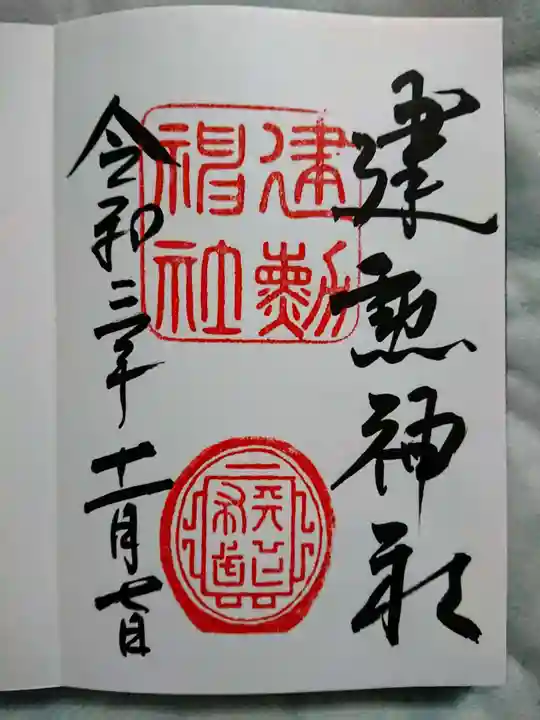 建勲神社
建勲
神社
天下布武
令和三年十一月七日